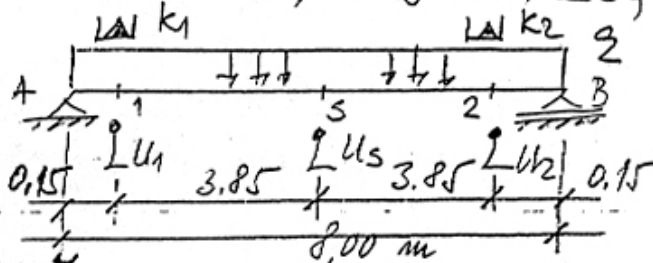 k1 k2 q
A 1 S 2 B
U1 US U2
0.15 3.85 3.85 0.15
8,00 m